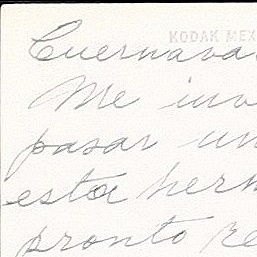 KODAK MEX
Cuernava
Me inv
pasar un
esta herm
pronto re